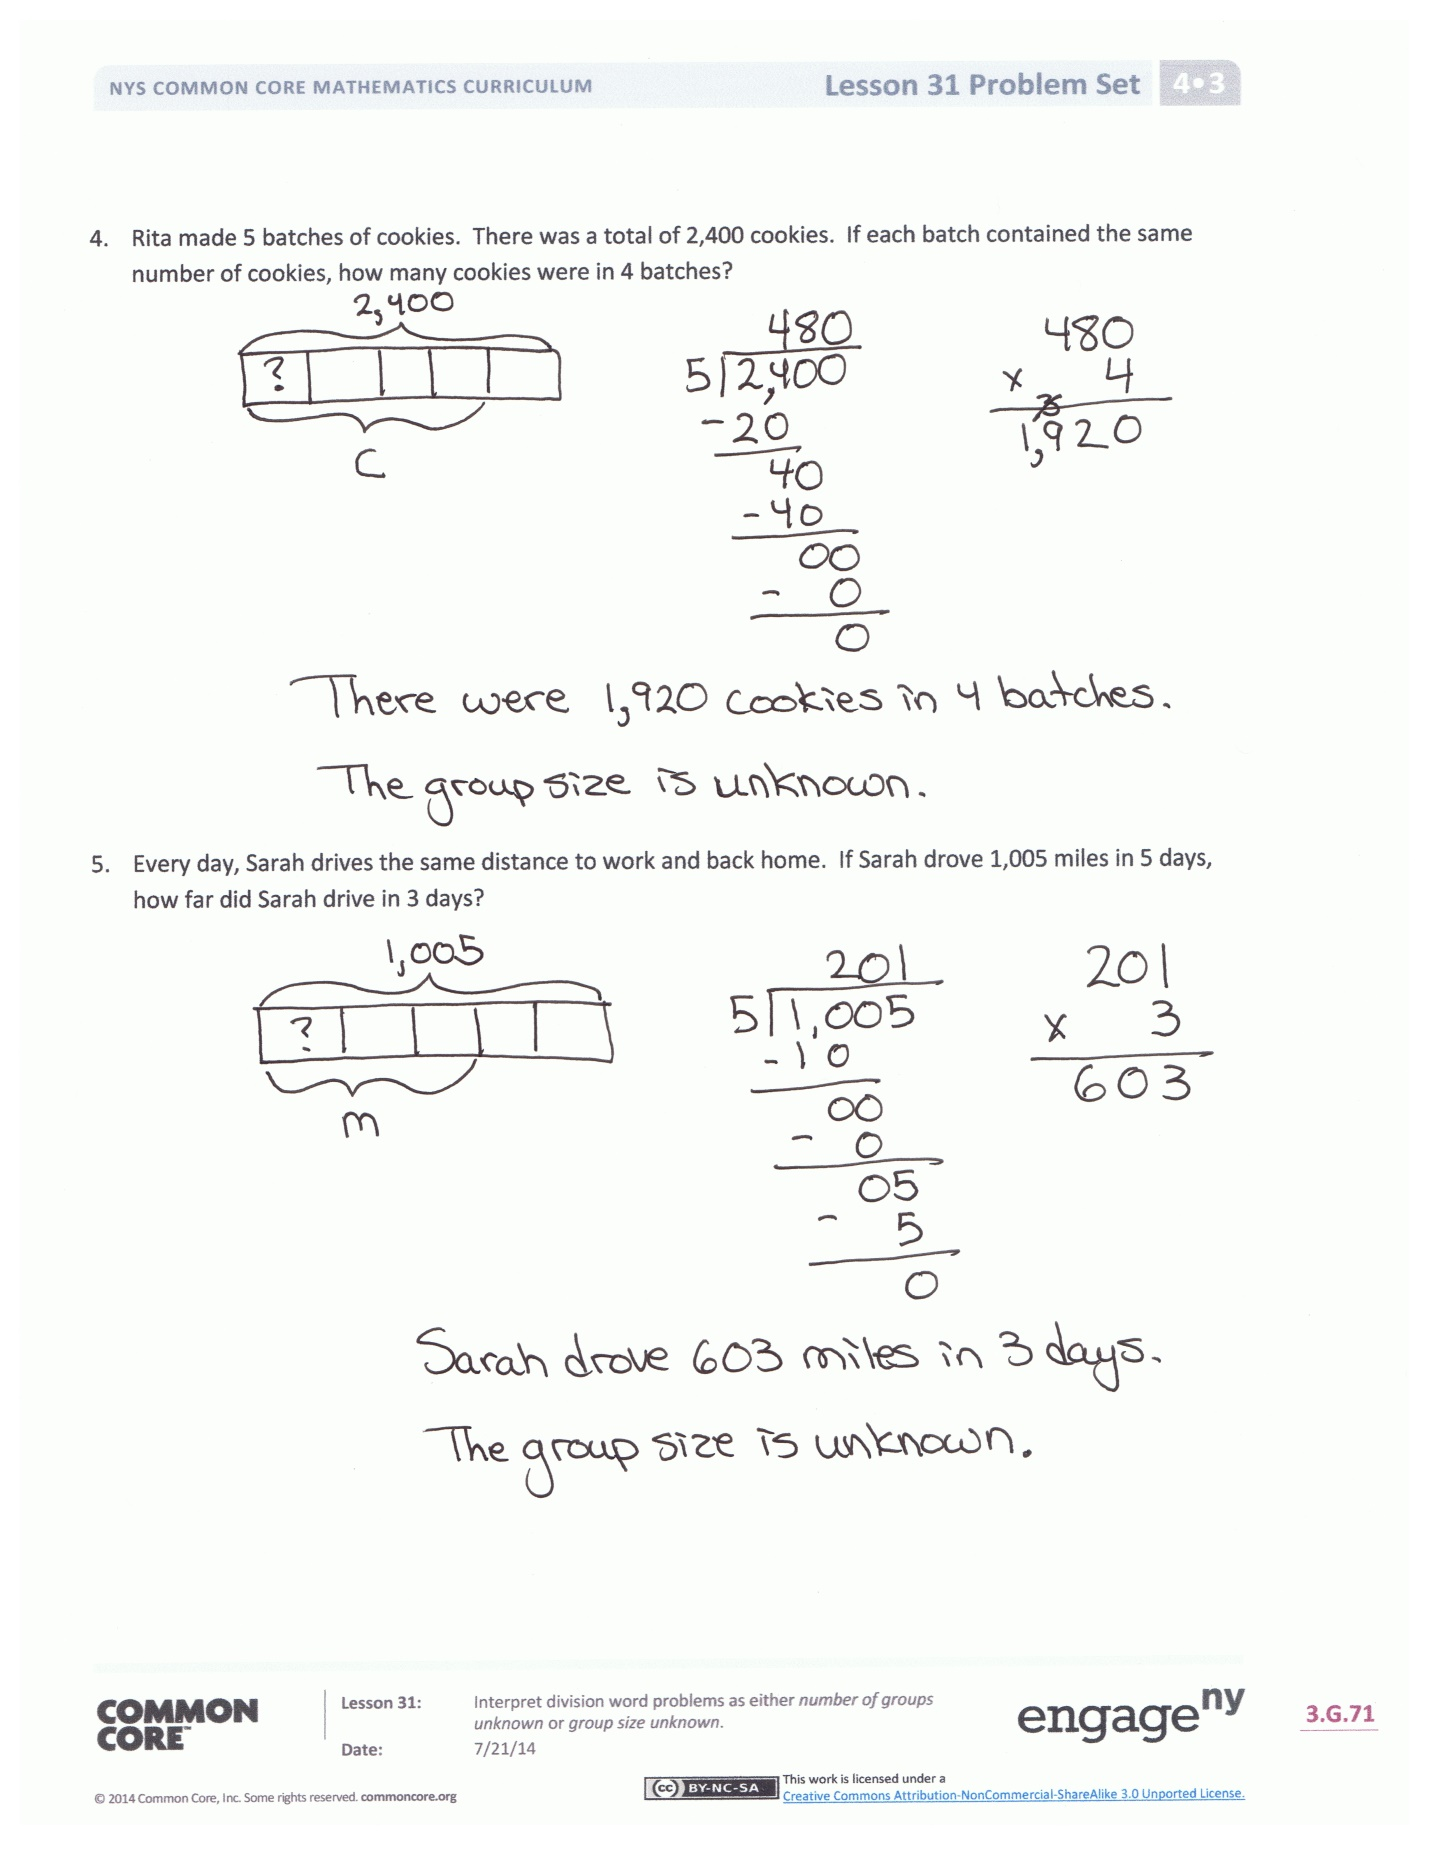 NYS COMMON CORE MATHEMATICS CURRICULUM
Lesson 31 Problem Set
4•3
4. Rita made 5 batches of cookies. There was a total of 2,400 cookies. If each batch contained the same
number of cookies, how many cookies were in 4 batches?
2,400
?
C
480
5 2,400
-20
40
-40
00
- 0
0
480
x 4
3
1,920
There were 1,920 cookies in 4 batches.
The group size is unknown.
5. Every day, Sarah drives the same distance to work and back home. If Sarah drove 1,005 miles in 5 days,
how far did Sarah drive in 3 days?
1,005
?
m
201
5 1,005
-10
00
- 0
05
- 5
0
201
x 3
603
Sarah drove 603 miles in 3 days.
The group size is unknown.
COMMON
CORE™
Lesson 31:
Interpret division word problems as either number of groups
unknown or group size unknown.
Date:
7/21/14
engage ny
3.G.71
© 2014 Common Core, Inc. Some rights reserved. commoncore.org
cc BY-NC-SA
This work is licensed under a
Creative Commons Attribution-NonCommercial-ShareAlike 3.0 Unported License.